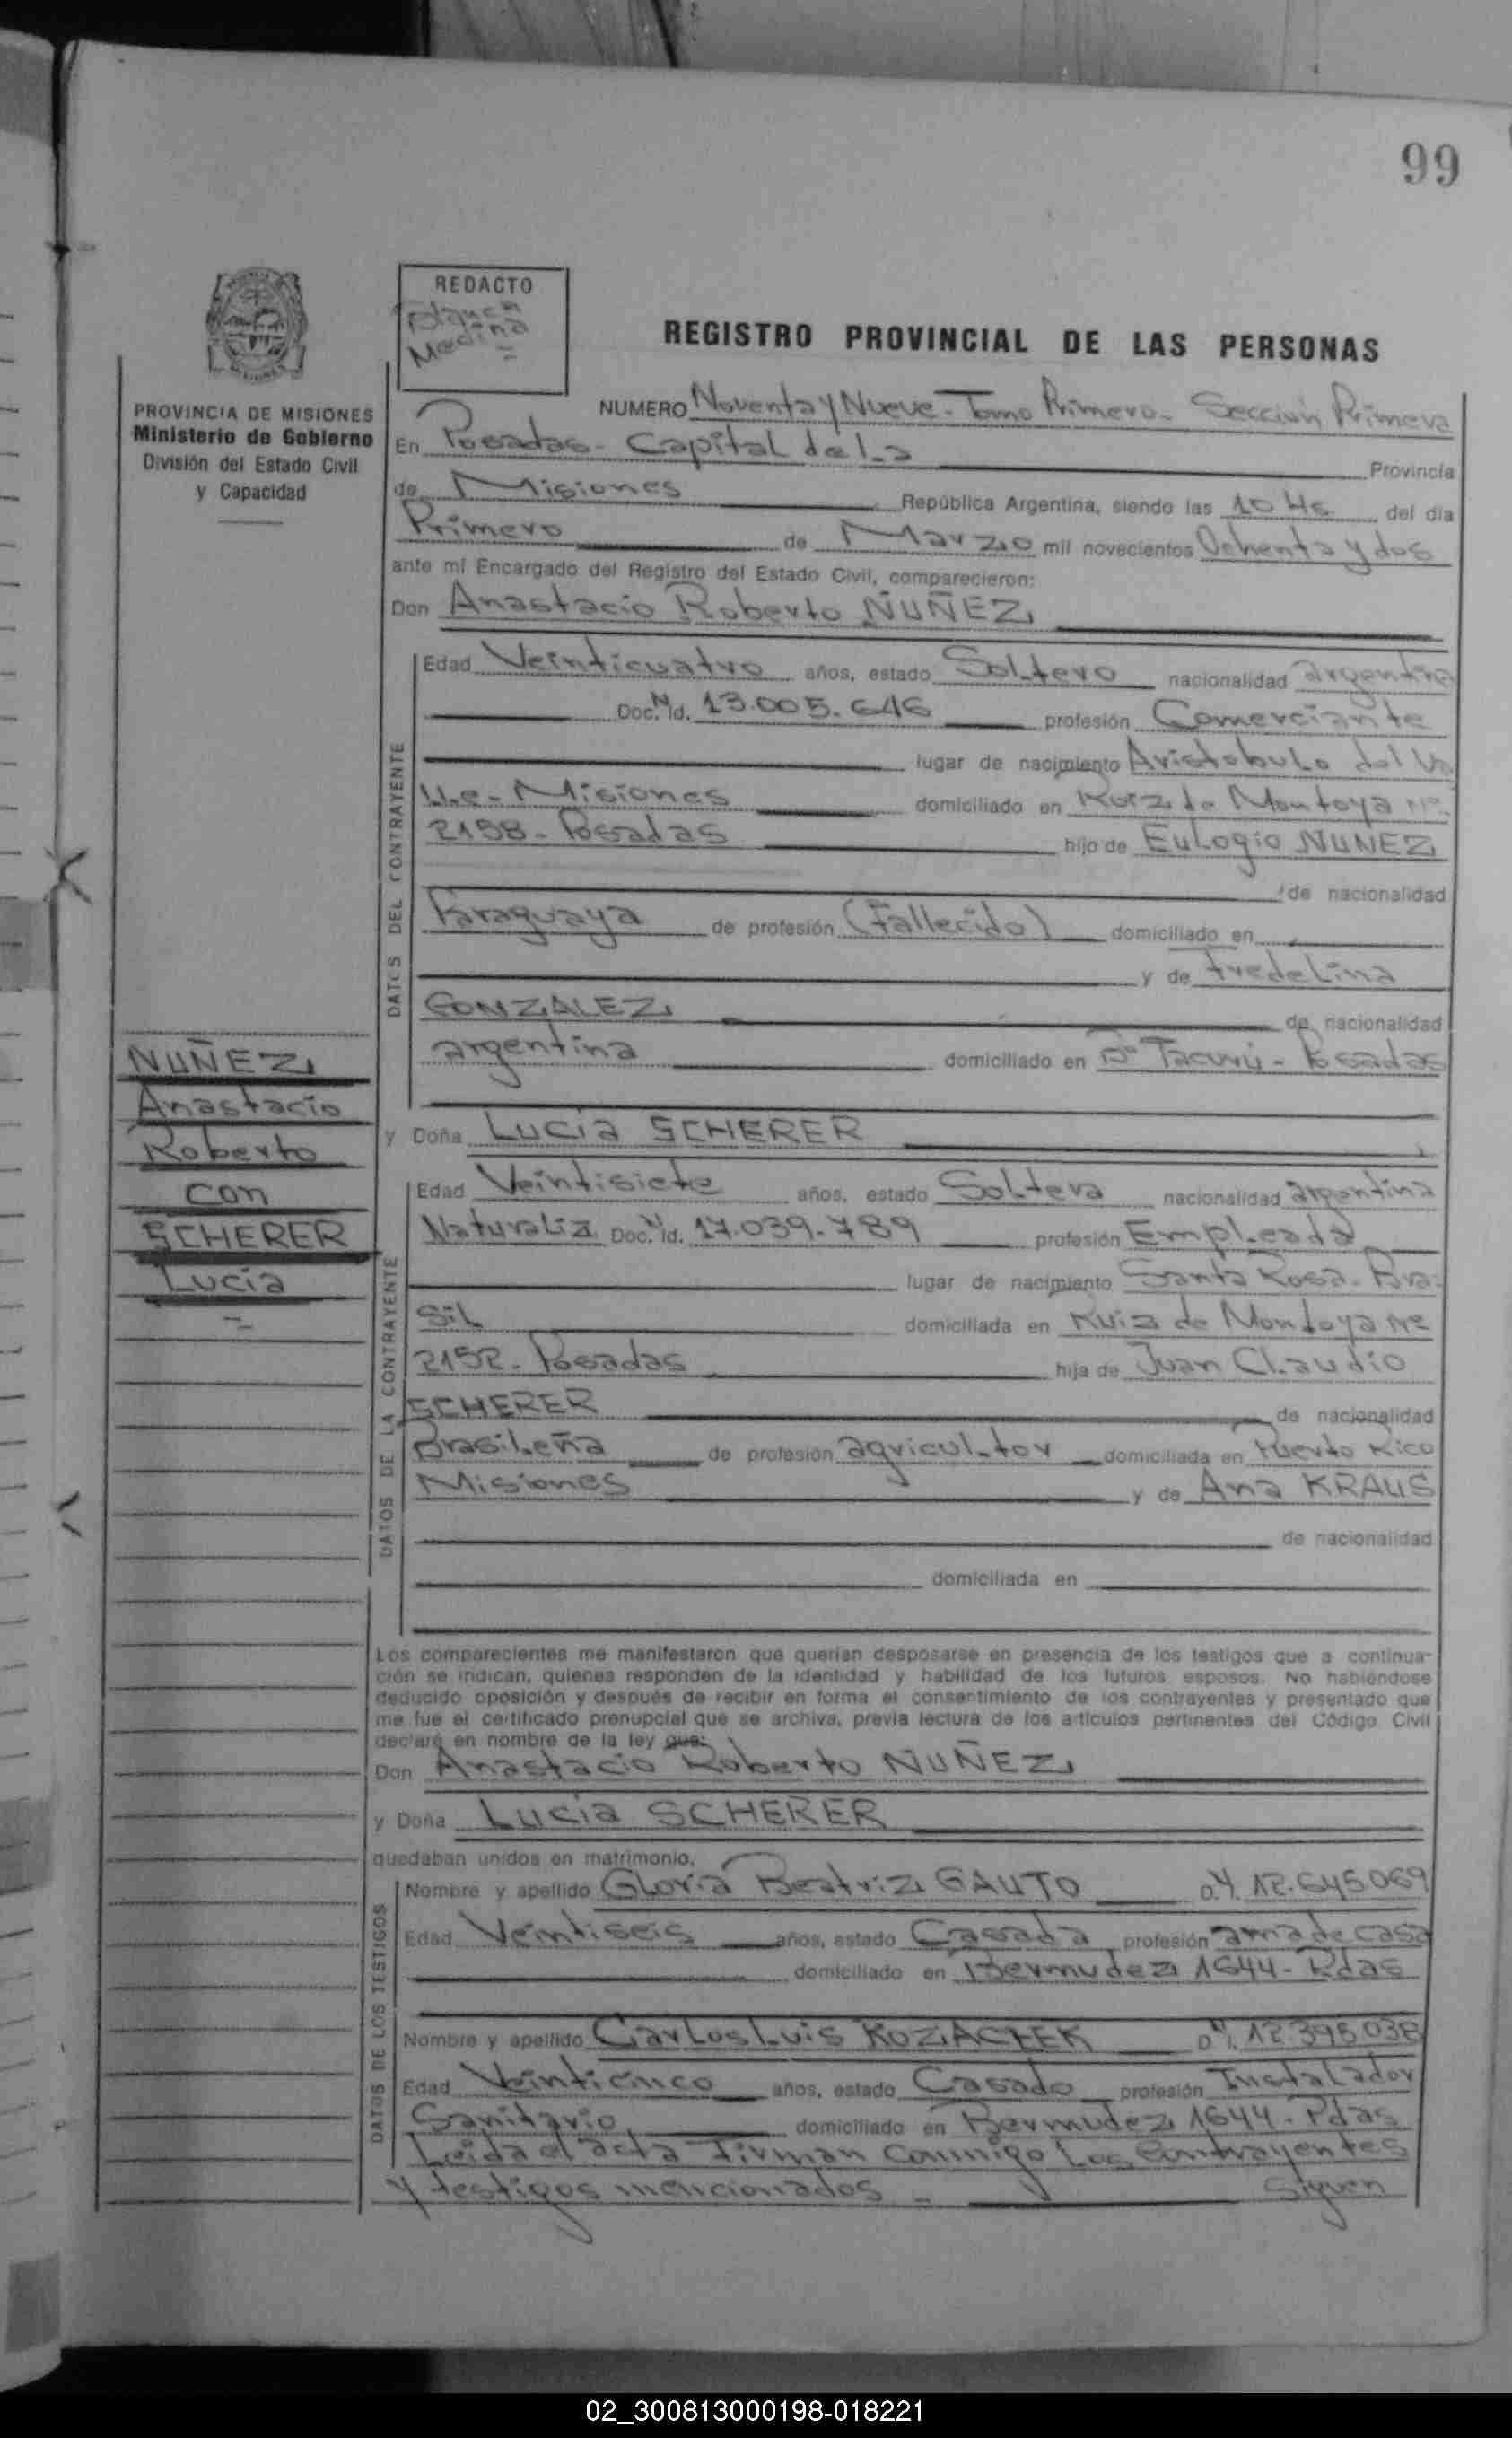 99
REDACTO
Medina
REGISTRO PROVINCIAL DE LAS PERSONAS
PROVINCIA DE MISIONES
Ministerio de Gobierno
División del Estado Civil
y Capacidad
NUMERO Noventa y Nueve - Tomo Primero - Sección Primera
En Posadas - Capital de La Provincia
de Misiones República Argentina, siendo las 10 Hs del día
Primero de Marzo mil novecientos Ochenta y dos
ante mí Encargado del Registro del Estado Civil, comparecieron:
Don Anastacio Roberto NUÑEZ
DATOS DEL CONTRAYENTE
Edad Veinticuatro años, estado Soltero nacionalidad argentina
Doc. N Id. 13.005.646 profesión Comerciante
lugar de nacimiento Aristobulo del Va
lle - Misiones domiciliado en Ruiz de Montoya Nº
2158 - Posadas hijo de Eulogio NUÑEZ
de nacionalidad
Paraguaya de profesión (Fallecido) domiciliado en
y de Fredelina
GONZALEZ de nacionalidad
argentina domiciliado en Bº Tacurú - Posadas
y Doña Lucia SCHERER
NUÑEZ
Anastacio
Roberto
con
SCHERER
Lucia
DATOS DE LA CONTRAYENTE
Edad Veintisiete años, estado Soltera nacionalidad argentina
Naturaliz. Doc. N Id. 17.039.789 profesión Empleada
lugar de nacimiento Santa Rosa - Bra-
sil domiciliada en Ruiz de Montoya Nº
2152 - Posadas hija de Juan Claudio
SCHERER de nacionalidad
Brasileña de profesión agricultor domiciliada en Puerto Rico
Misiones y de Ana KRAUS
de nacionalidad
domiciliada en
Los comparecientes me manifestaron que querían desposarse en presencia de los testigos que a continua-
ción se indican, quienes responden de la identidad y habilidad de los futuros esposos. No habiéndose
deducido oposición y después de recibir en forma el consentimiento de los contrayentes y presentado que
me fue el certificado prenupcial que se archiva, previa lectura de los artículos pertinentes del Código Civil
declaré en nombre de la ley que:
Don Anastacio Roberto NUÑEZ
y Doña Lucia SCHERER
quedaban unidos en matrimonio.
DATOS DE LOS TESTIGOS
Nombre y apellido Gloria Beatriz GAUTO 12.645.069
Edad Veintiseis años, estado Casada profesión ama de casa
domiciliado en Bermudez 1644 - Pdas
Nombre y apellido Carlos Luis KOZACZEK 12.395.038
Edad Veinticinco años, estado Casado profesión Instalador
Sanitario domiciliado en Bermudez 1644 - Pdas
Leida el acta Firman conmigo Los Contrayentes
y testigos mencionados - Siguen
02_300813000198-018221